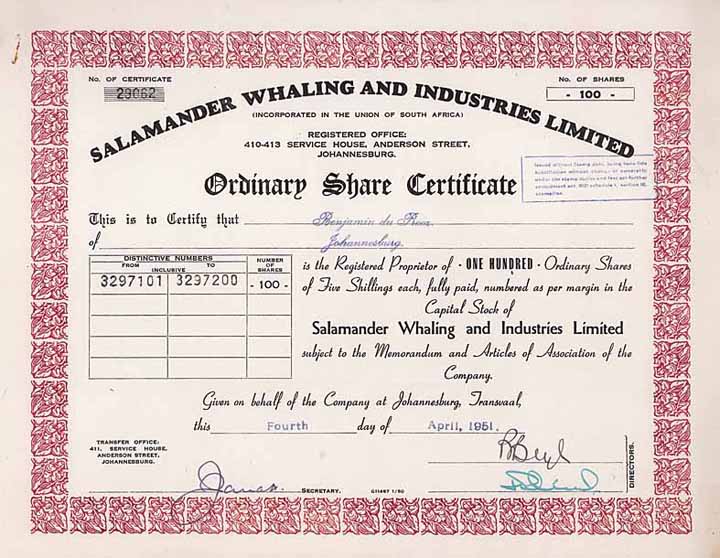 No. OF CERTIFICATE
29062
No. OF SHARES
- 100 -
SALAMANDER WHALING AND INDUSTRIES LIMITED
(INCORPORATED IN THE UNION OF SOUTH AFRICA)
REGISTERED OFFICE:
410-413 SERVICE HOUSE, ANDERSON STREET,
JOHANNESBURG.
Ordinary Share Certificate
This is to Certify that Benjamin du
of Johannesburg.
DISTINCTIVE NUMBERS
FROM TO
INCLUSIVE
NUMBER
OF
SHARES
3297101 3297200 - 100 -
is the Registered Proprietor of - ONE HUNDRED - Ordinary Shares
of Five Shillings each, fully paid, numbered as per margin in the
Capital Stock of
Salamander Whaling and Industries Limited
subject to the Memorandum and Articles of Association of the
Company.
Given on behalf of the Company at Johannesburg, Transvaal,
this Fourth day of April, 1951.
TRANSFER OFFICE:
411, SERVICE HOUSE,
ANDERSON STREET,
JOHANNESBURG.
SECRETARY.
G11487 1/50
DIRECTORS.